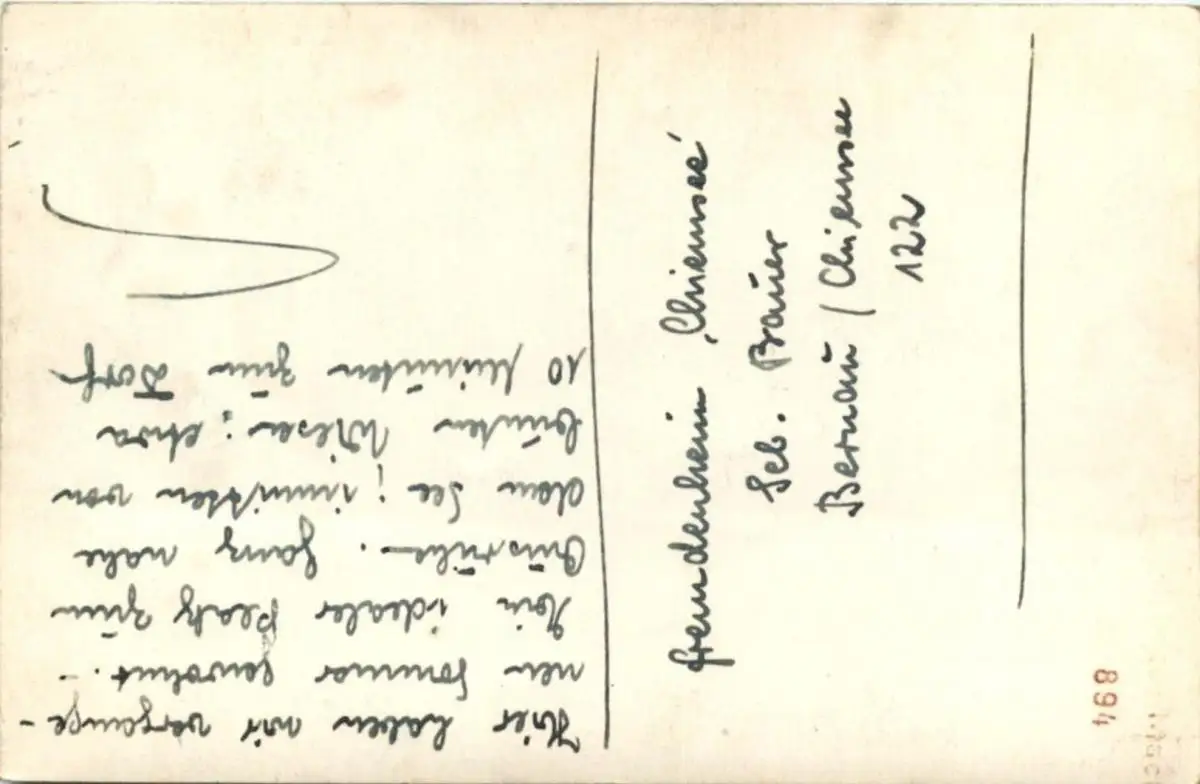 Hier haben wir vergange-
nen Sommer gewohnt. -
Ein idealer Platz zum
Ausruhen. Ganz nahe
dem See; inmitten von
bunten Wiesen; etwa
10 Minuten zum Dorf
Fremdenheim 'Chiemsee'
Seb. Brauer
Bernau / Chiemsee
122
894